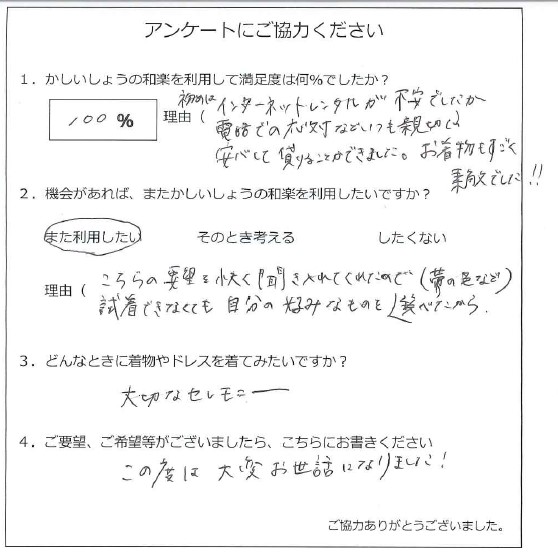 アンケートにご協力ください
1．かしいしょうの和楽を利用して満足度は何％でしたか？
100 %
理由（ 初めはインターネットレンタルが不安でしたが
電話での応対などいつも親切で
安心して借りることができました。お着物もすごく
素敵でした!!
2．機会があれば、またかしいしょうの和楽を利用したいですか？
また利用したい そのとき考える したくない
理由（ こちらの要望も快く聞き入れてくれたので（帯の色など）
試着できなくても自分の好みなものを選べたから．
3．どんなときに着物やドレスを着てみたいですか？
大切なセレモニー
4．ご要望、ご希望等がございましたら、こちらにお書きください
この度は大変お世話になりました!
ご協力ありがとうございました。